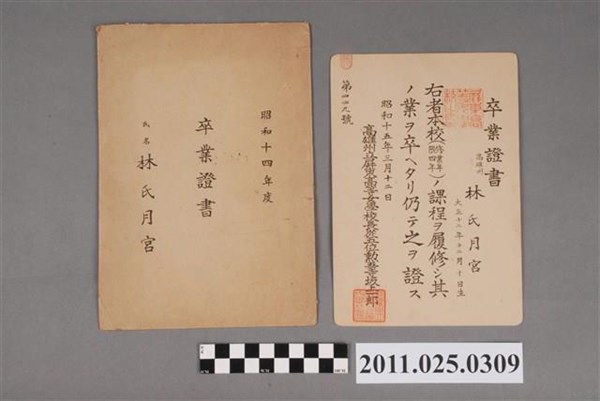 卒業證書
高雄州
林氏月宮
大正十二年十二月十日生
右者本校(修業年限四年)ノ課程ヲ履修シ其
ノ業ヲ卒ヘタリ仍テ之ヲ證ス
昭和十五年三月十二日
高雄州立屏東高等女學校長
第四四九號
昭和十四年度
卒業證書
氏名 林氏月宮
2011.025.0309